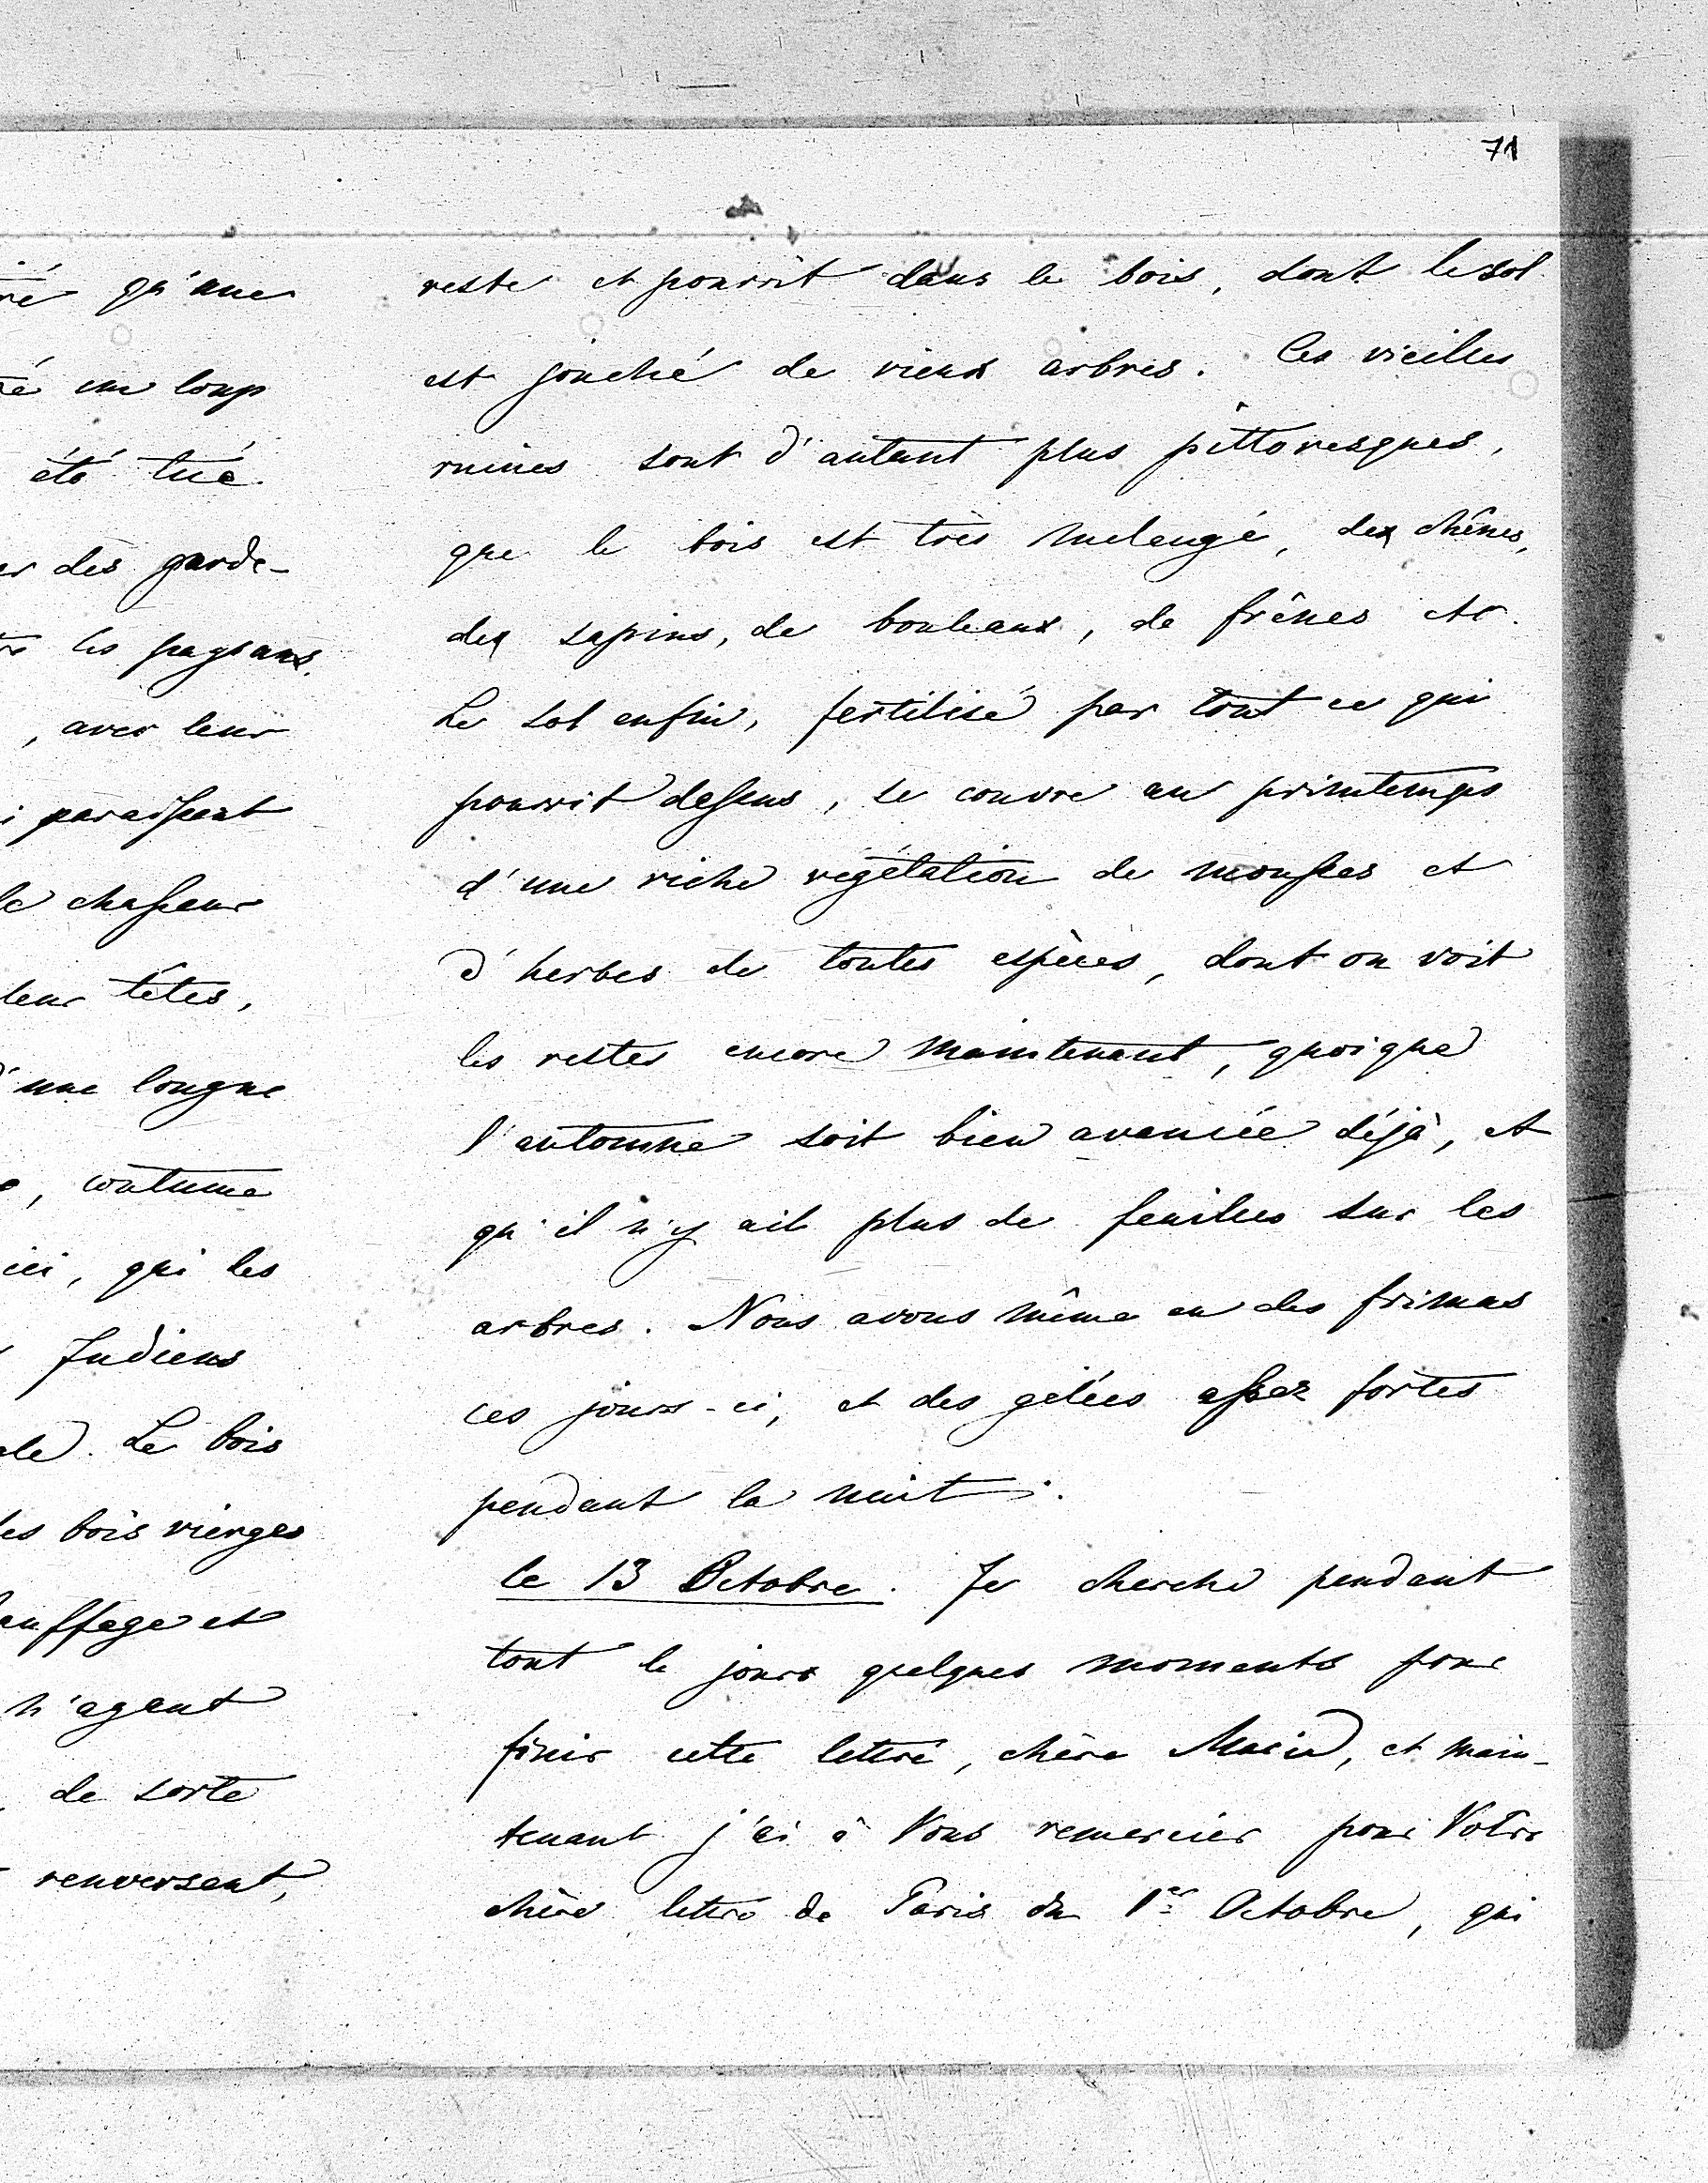 71
ré qu'une
é un loup
été tué.
er des garde-
les paysans.
, avec leur
i paraissent
le chasseur
leur têtes,
d'une longue
e, coutume
ici, qui les
Indiens
ale. Le bois
les bois vierges
auffage et
n'agent
, de sorte
renversent,
reste et pourrit dans le bois, dont le sol
est jonché de vieux arbres. Ces vieilles
ruines sont d'autant plus pittoresques,
que le bois est très melangé, des chênes,
des sapins, de bouleaux, de frênes etc.
Le sol enfin, fertilisé par tout ce qui
pourrit dessus, se couvre au printemps
d'une riche végétation de mousses et
d'herbes de toutes espèces, dont on voit
les restes encore maintenant, quoique
l'automne soit bien avancée déjà, et
qu'il n'y ait plus de feuilles sur les
arbres. Nous avons même eu des frimas
ces jours-ci, et des gelées assez fortes
pendant la nuit.
le 13 Octobre. Je cherche pendant
tout le jour quelques moments pour
finir cette lettre, chère Marie, et main-
tenant j'ai à Vous remercier pour Votre
chère lettre de Paris du 1er Octobre, qui